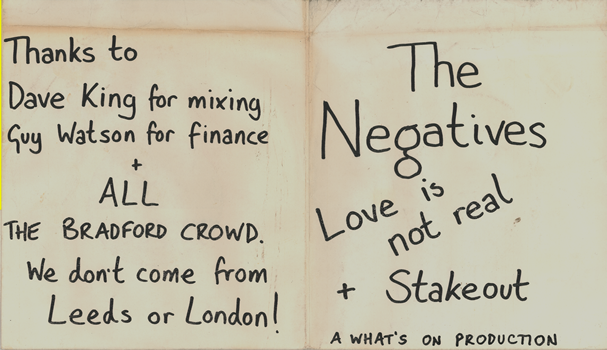 Thanks to
Dave King for mixing
Guy Watson for finance
+
ALL
THE BRADFORD CROWD.
We don't come from
Leeds or London!
The
Negatives
Love is
not real
+ Stakeout
A WHAT'S ON PRODUCTION